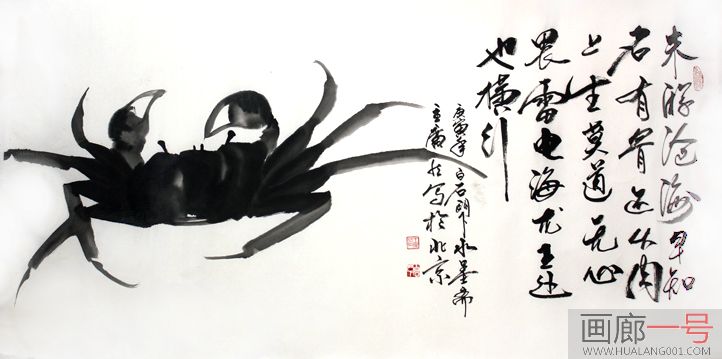 未游沧海早知
名有骨还从肉
上生莫道无心
畏雷电海龙王处
也横行
庚寅年白石門水墨斋
主写於北京
画廊一号
WWW.HUALANG001.COM